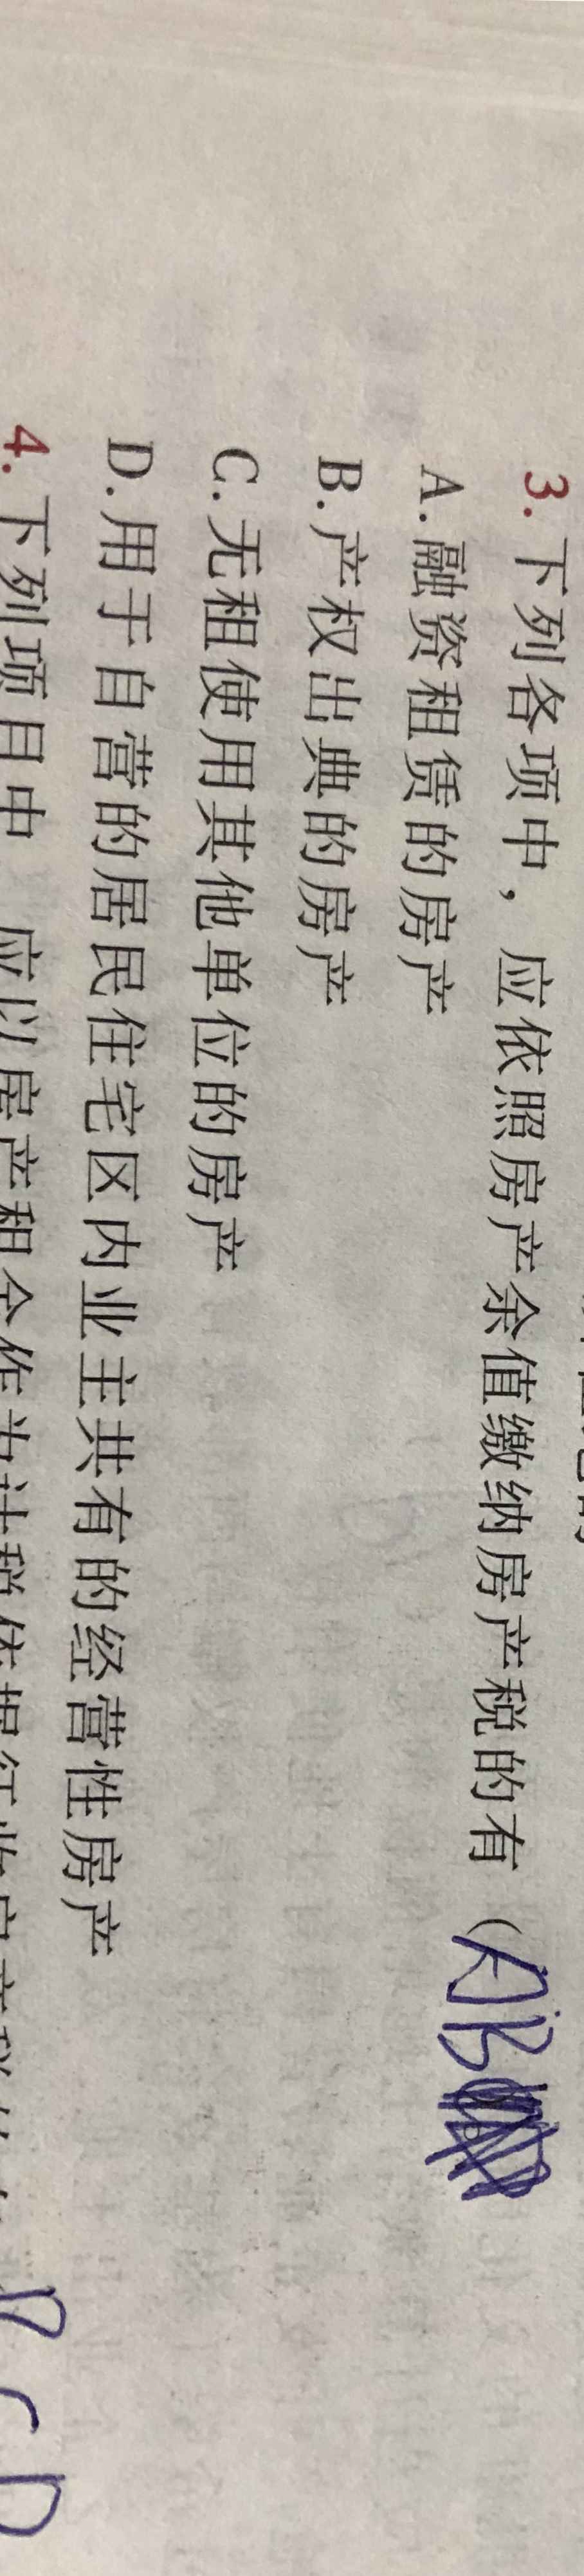 3.下列各项中，应依照房产余值缴纳房产税的有（AB
A.融资租赁的房产
B.产权出典的房产
C.无租使用其他单位的房产
D.用于自营的居民住宅区内业主共有的经营性房产
4.下列项目中 应以房产租金作为计税依据征收房产税的 BCD